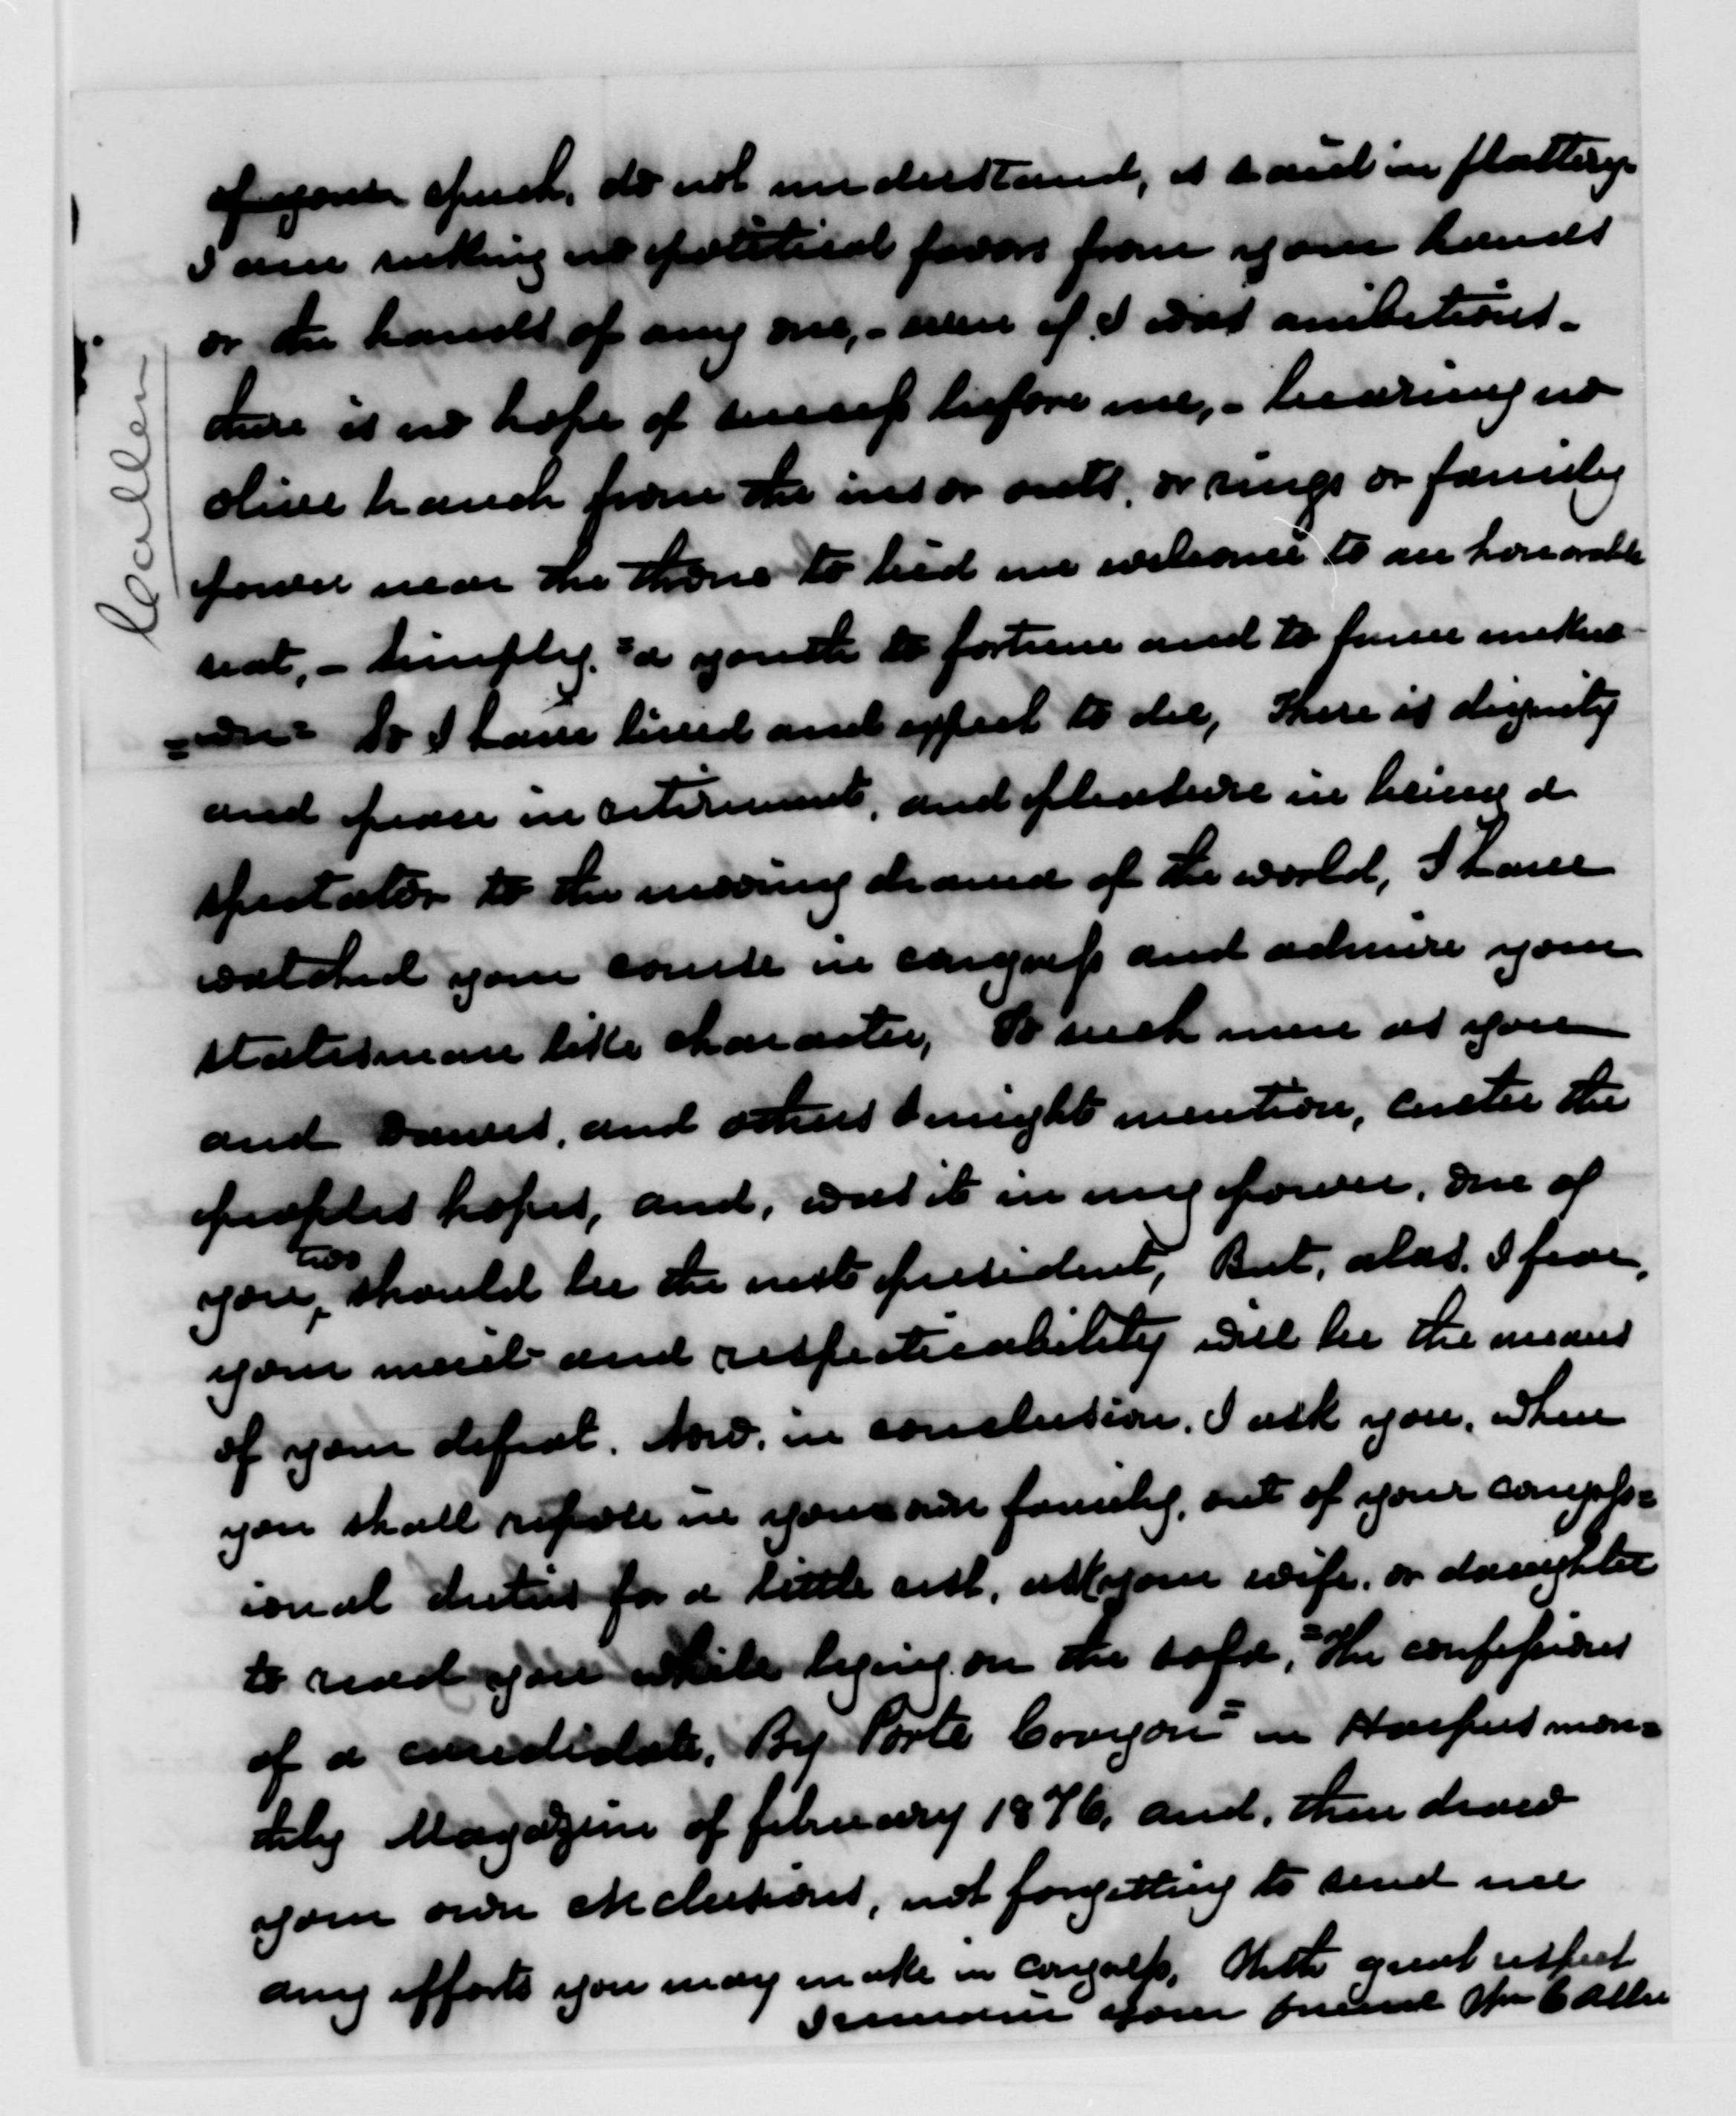 of your speech, do not understand, is said in flattery.
I am seeking no political favors from your hands
or the hands of any one, - even if I was ambitious -
there is no hope of success before me, - bearing no
olive branch from the ins or outs, or rings or family
power near the throne to bid me welcome to an honorable
seat, - simply, "a youth to fortune and to fame unkno-
=wn" So I have lived and expect to die, There is dignity
and peace in retirement, and pleasure in being a
spectator to the moving drama of the world, I have
watched your course in congress and admire your
statesman like character, To such men as you
and Dawes, and others I might mention, center the
peoples hopes, and, was it in my power, one of
you two should be the next president, But, alas, I fear,
your merit and respecticability will be the means
of your defeat. Now, in conclusion, I ask you, when
you shall repose in your own family, out of your congress=
ional duties for a little rest, ask your wife, or daughter
to read you while lying on the sofa, "The confessions
of a candidate, By Porte Crayon" in Harpers mon=
thly Magazine of february 1876, and, then draw
your own conclusions, not forgetting to send me
any efforts you may make in congress, With great respect
I remain your friend Wm C Allen
C Allen